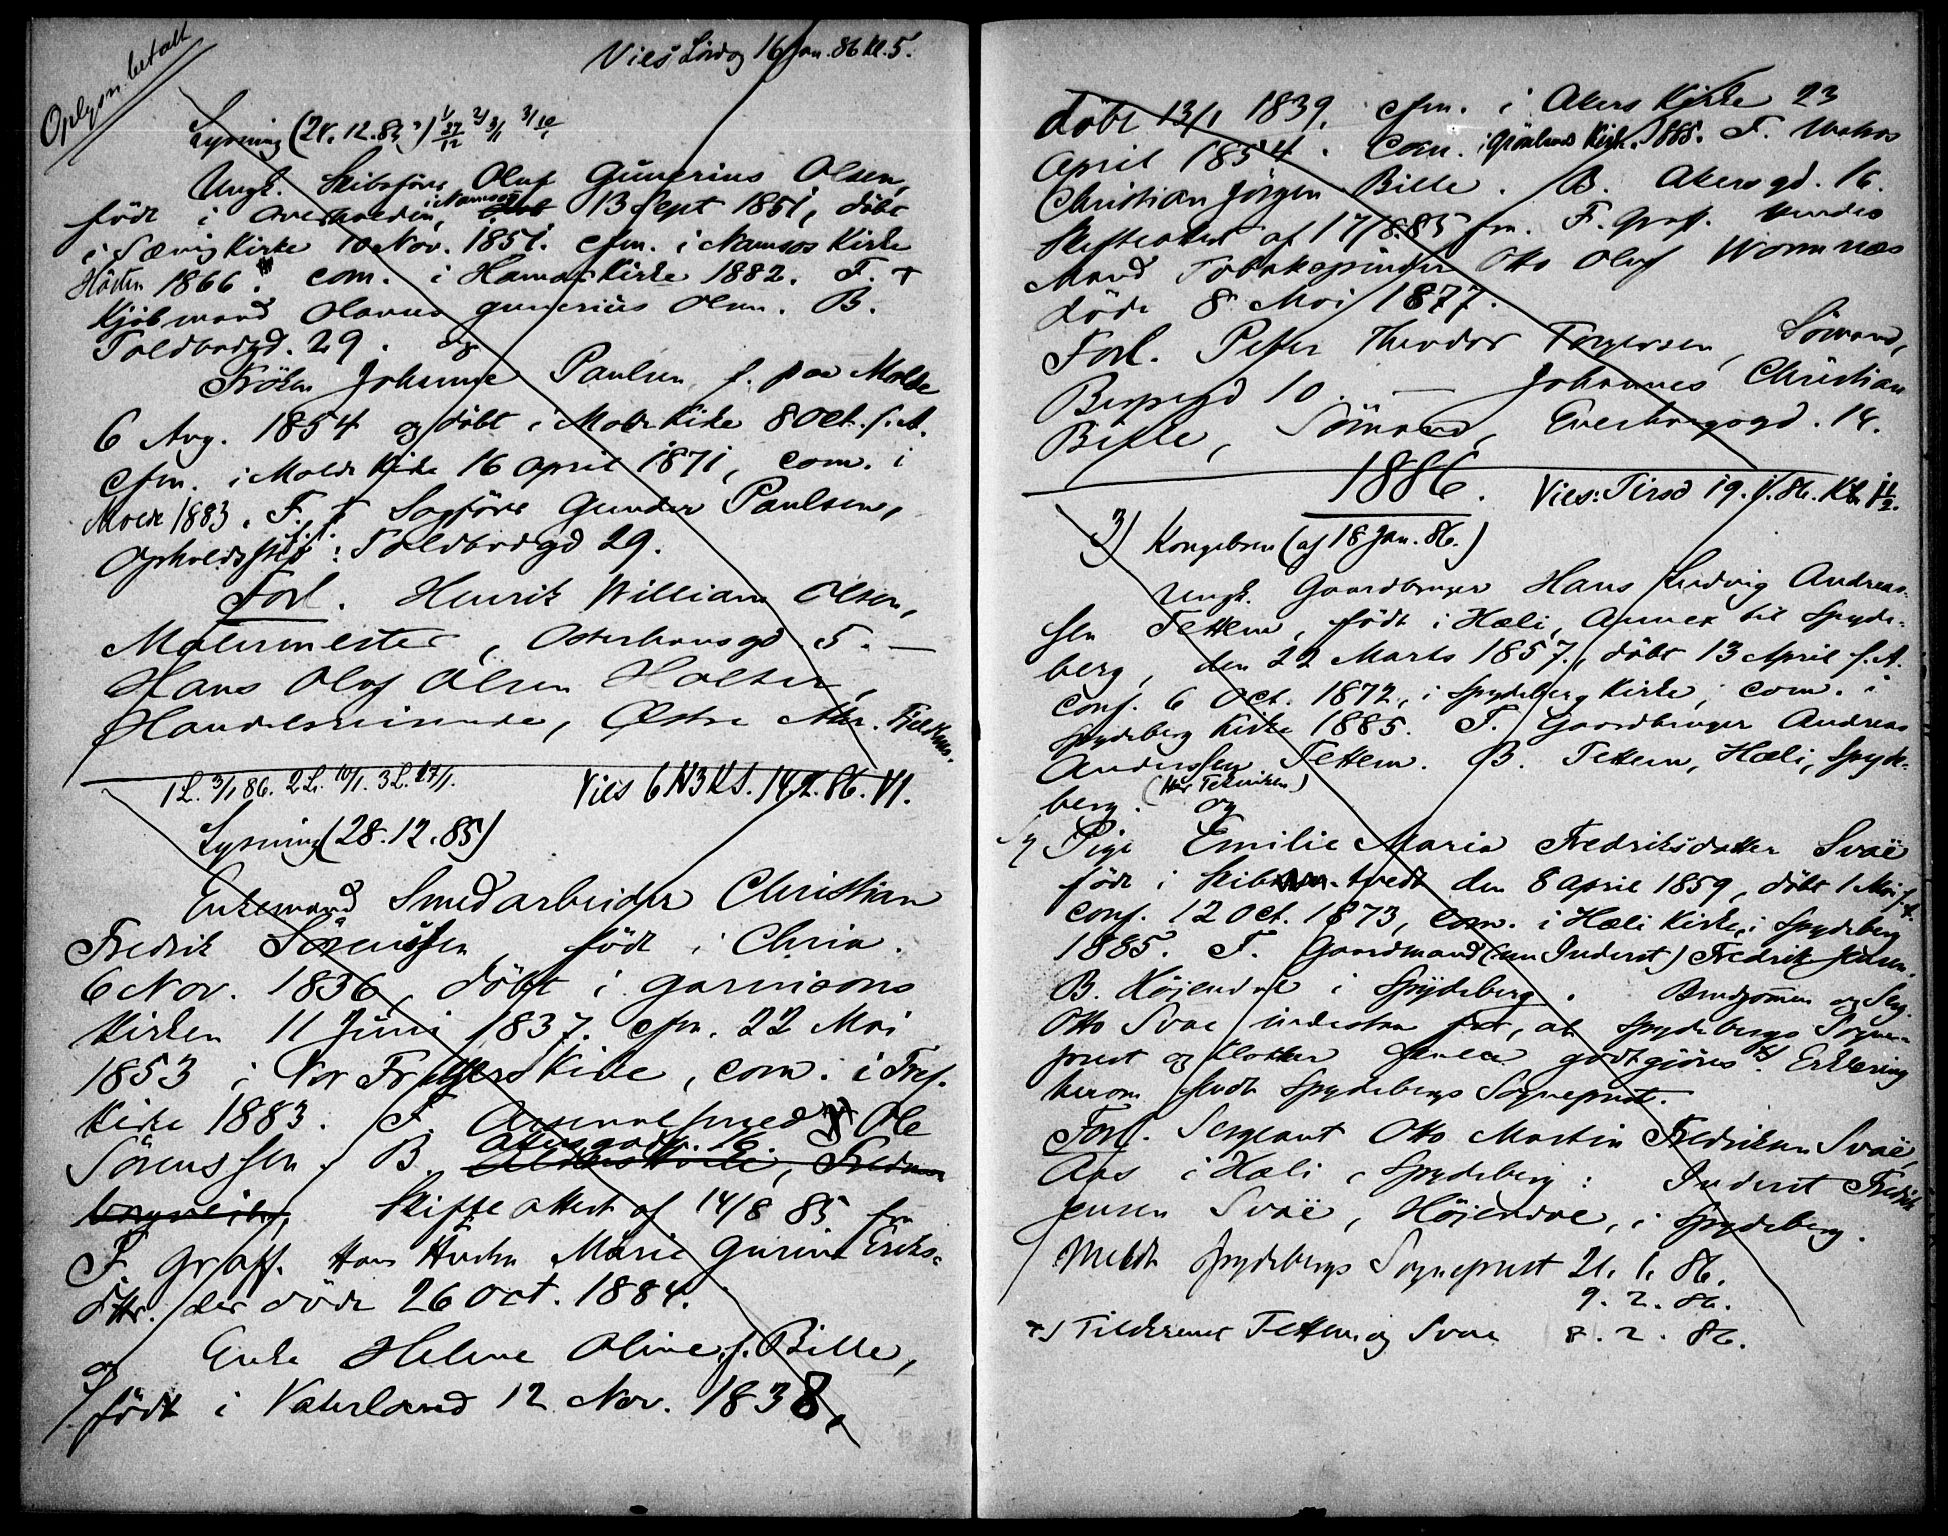 Oplysn. betalt
Vies Lørdag 16 Jan. 86 kl. 5.
Lysning (24.12.85) 1/27/12 2/3/1 3/10/1
Ungk. Skibsfører Oluf Gunerius Olsen,
født i Overhalden, i Namsos 13 Sept 1851, døbt
i Sævig Kirke 10 Nov. 1851. cfm. i Namsos Kirke
Høsten 1866. com. i Hamar Kirke 1882. F. +
Kjøbmand Olavus Gunerius Olsen. B.
Toldbodgd. 29. og
Frøken Johanne Paulsen, f. paa Molde
6 Aug. 1854 og døbt i Molde Kirke 8 Oct. s. A.
cfm. i Molde Kirke 16 April 1871, com. i
Molde 1883. F. + Sagfører Gunder Paulsen,
Opholdssted: Toldbodgd 29.
Forl. Henrik William Olsen,
Malermester, Osterhausgd. 5. —
Hans Olaf Olsen Holter,
Handelsreisende, Østre Aker.
1 L. 3/1 86. 2 L. 10/1. 3 L. 17/1.
Vies
Lysning (28.12.85)
Enkemand Smedarbeider Christian
Fredrik Sørenssen født i Chria.
6 Nov. 1836, døbt i Garnisons
Kirken 11 Juni 1837. cfm. 22 Mai
1853 i Vor Frelsers Kirke, com. i Tref.
Kirke 1883. F. Arsenalsmed Ole
Sørenssen. B. Akersgaden 16.
Skifteattest af 14/8 85 fra
F. Graff. Hans Hustru Marie Gurine Eriks-
dtr. der døde 26 Oct. 1884.
og Enke Helene Oline, f. Bille,
født i Vaterland 12 Nov. 1838,
døbt 13/1 1839, cfm. i Akers Kirke 23
April 1854. Com. i Grønlands Kirke 1885. F.
Christian Jørgen Bille. B. Akersgd. 16.
Skifteattest af 17/8.85 fra F. Graff. Hendes
Mand Tobakspinder Otto Oluf Wormnæs
døde 8 Mai 1877.
Forl. Peter Theodor Torgersen, Sømand,
Bispegd 10. — Johannes Christian
Bille, Sømand, Enerhaugsgd. 14.
1886.
Vies: Tirsd 19.1.86. Kl.
3) Kongebrev (af 18 Jan. 86.)
Ungk. Gaardbruger Hans Ludvig Andreas-
sen Tettem, født i Hæli, Annex til Spyde-
berg, den 22 Marts 1857, døbt 13 April s. A.
Conf. 6 Oct. 1872, i Spydeberg Kirke, com. i
Spydeberg Kirke 1885. F. Gaardbruger Andreas
Anderssen Tettem. B. Tettem, Hæli, Spyde-
berg. og
Pige Emilie Maria Fredriksdatter Svaë
født i Skibtvedt den 8 April 1859, døbt 1 Mai s. A.
Conf. 12 Oct. 1873, com. i Hæli Kirke i Spydeberg
1885. F. Gaardmand (nu Inderst) Fredrik Jensen.
B. Højendal i Spydeberg. Brudgommen og Serg.
Otto Svae indestaa for, at Spydebergs Sogne-
prest og Klokker godtgjøres. Erklæring
herom sendt Spydebergs Sogneprest.
Forl. Sergeant Otto Martin Fredriksen Svaë,
Aas i Hæli, Spydeberg: Inderst Fredrik
Jensen Svaë, Højendal, i Spydeberg.
Meldt Spydebergs Sogneprest 21.1.86.
9.2.86.
Tettem og Svae 8.2.86.